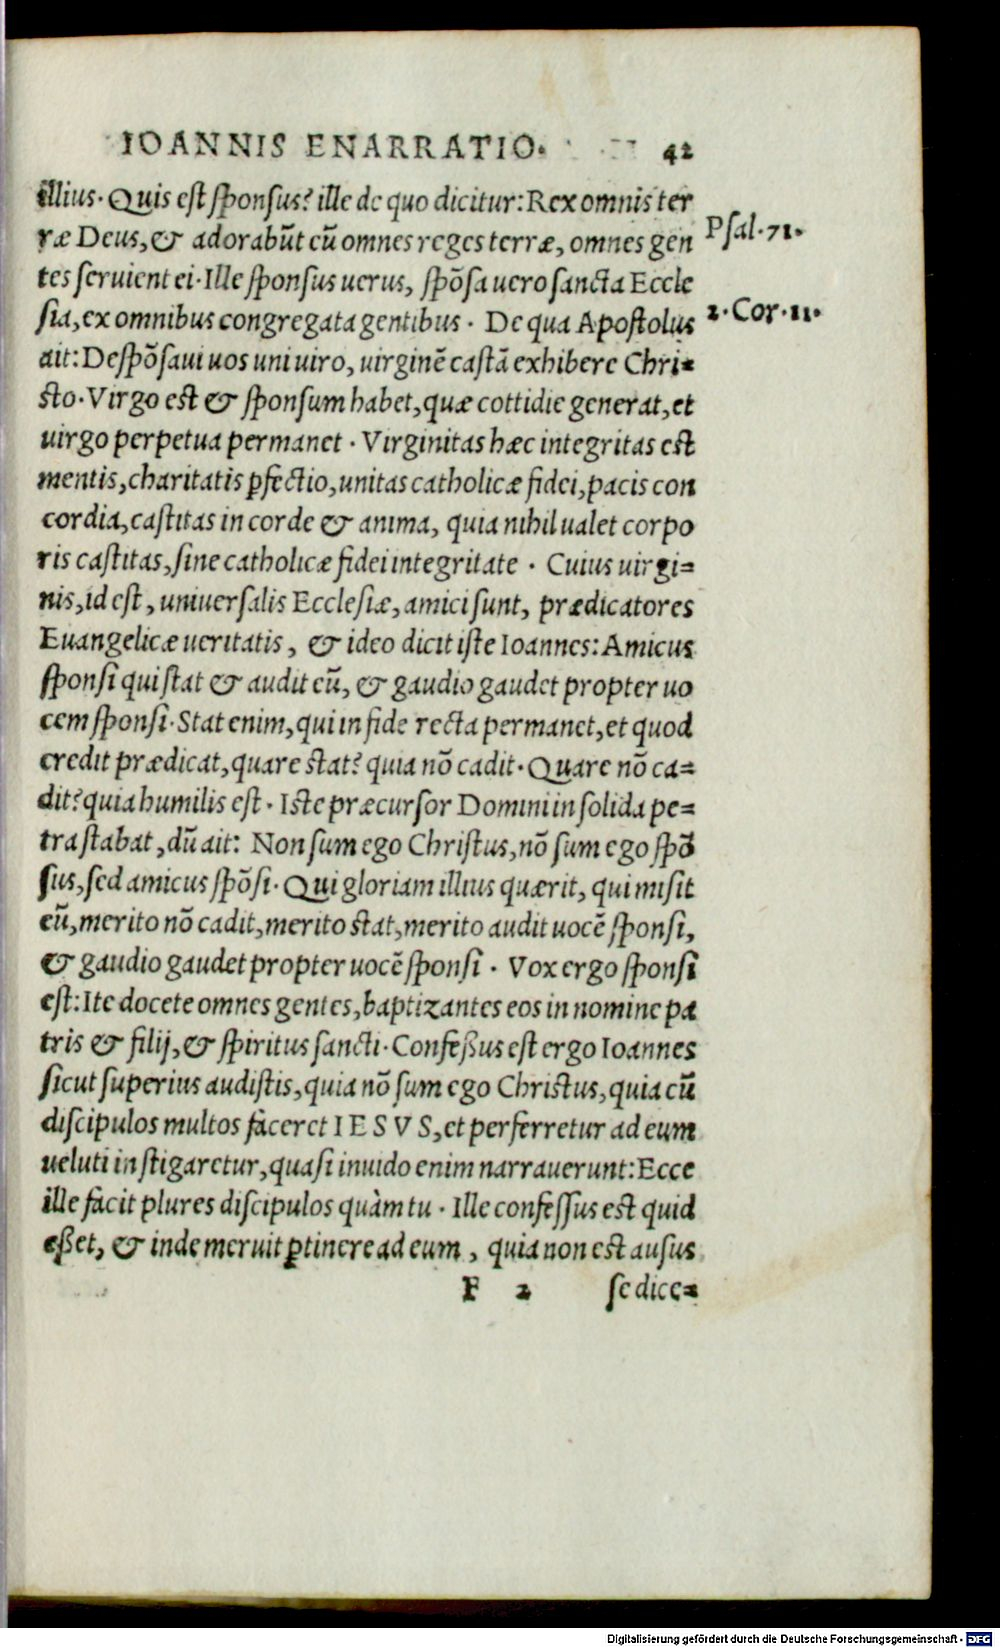 IOANNIS ENARRATIO. 42
illius. Quis est sponsus? ille de quo dicitur: Rex omnis ter
ræ Deus, & adorabūt eū omnes reges terræ, omnes gen
Psal. 71.
tes seruient ei. Ille sponsus uerus, spōsa uero sancta Eccle
sia, ex omnibus congregata gentibus. De qua Apostolus
2. Cor. 11.
ait: Despōsaui uos uni uiro, uirginē castā exhibere Chri-
sto. Virgo est & sponsum habet, quæ cottidie generat, et
uirgo perpetua permanet. Virginitas hæc integritas est
mentis, charitatis ꝑfectio, unitas catholicæ fidei, pacis con
cordia, castitas in corde & anima, quia nihil ualet corpo
ris castitas, sine catholicæ fidei integritate. Cuius uirgi-
nis, id est, uniuersalis Ecclesiæ, amici sunt, prædicatores
Euangelicæ ueritatis, & ideo dicit iste Ioannes: Amicus
sponsi qui stat & audit eū, & gaudio gaudet propter uo
cem sponsi. Stat enim, qui in fide recta permanet, et quod
credit prædicat, quare stat? quia nō cadit. Quare nō ca-
dit? quia humilis est. Iste præcursor Domini in solida pe-
tra stabat, dū ait: Non sum ego Christus, nō sum ego spō
sus, sed amicus spōsi. Qui gloriam illius quærit, qui misit
eū, merito nō cadit, merito stat, merito audit uocē sponsi,
& gaudio gaudet propter uocē sponsi. Vox ergo sponsi
est: Ite docete omnes gentes, baptizantes eos in nomine pa
tris & filij, & spiritus sancti. Confeßus est ergo Ioannes
sicut superius audistis, quia nō sum ego Christus, quia cū
discipulos multos faceret IESVS, et perferretur ad eum
ueluti instigaretur, quasi inuido enim narrauerunt: Ecce
ille facit plures discipulos quàm tu. Ille confessus est quid
eßet, & inde meruit ꝑtinere ad eum, quia non est ausus
F 2 se dice-
Digitalisierung gefördert durch die Deutsche Forschungsgemeinschaft - DFG